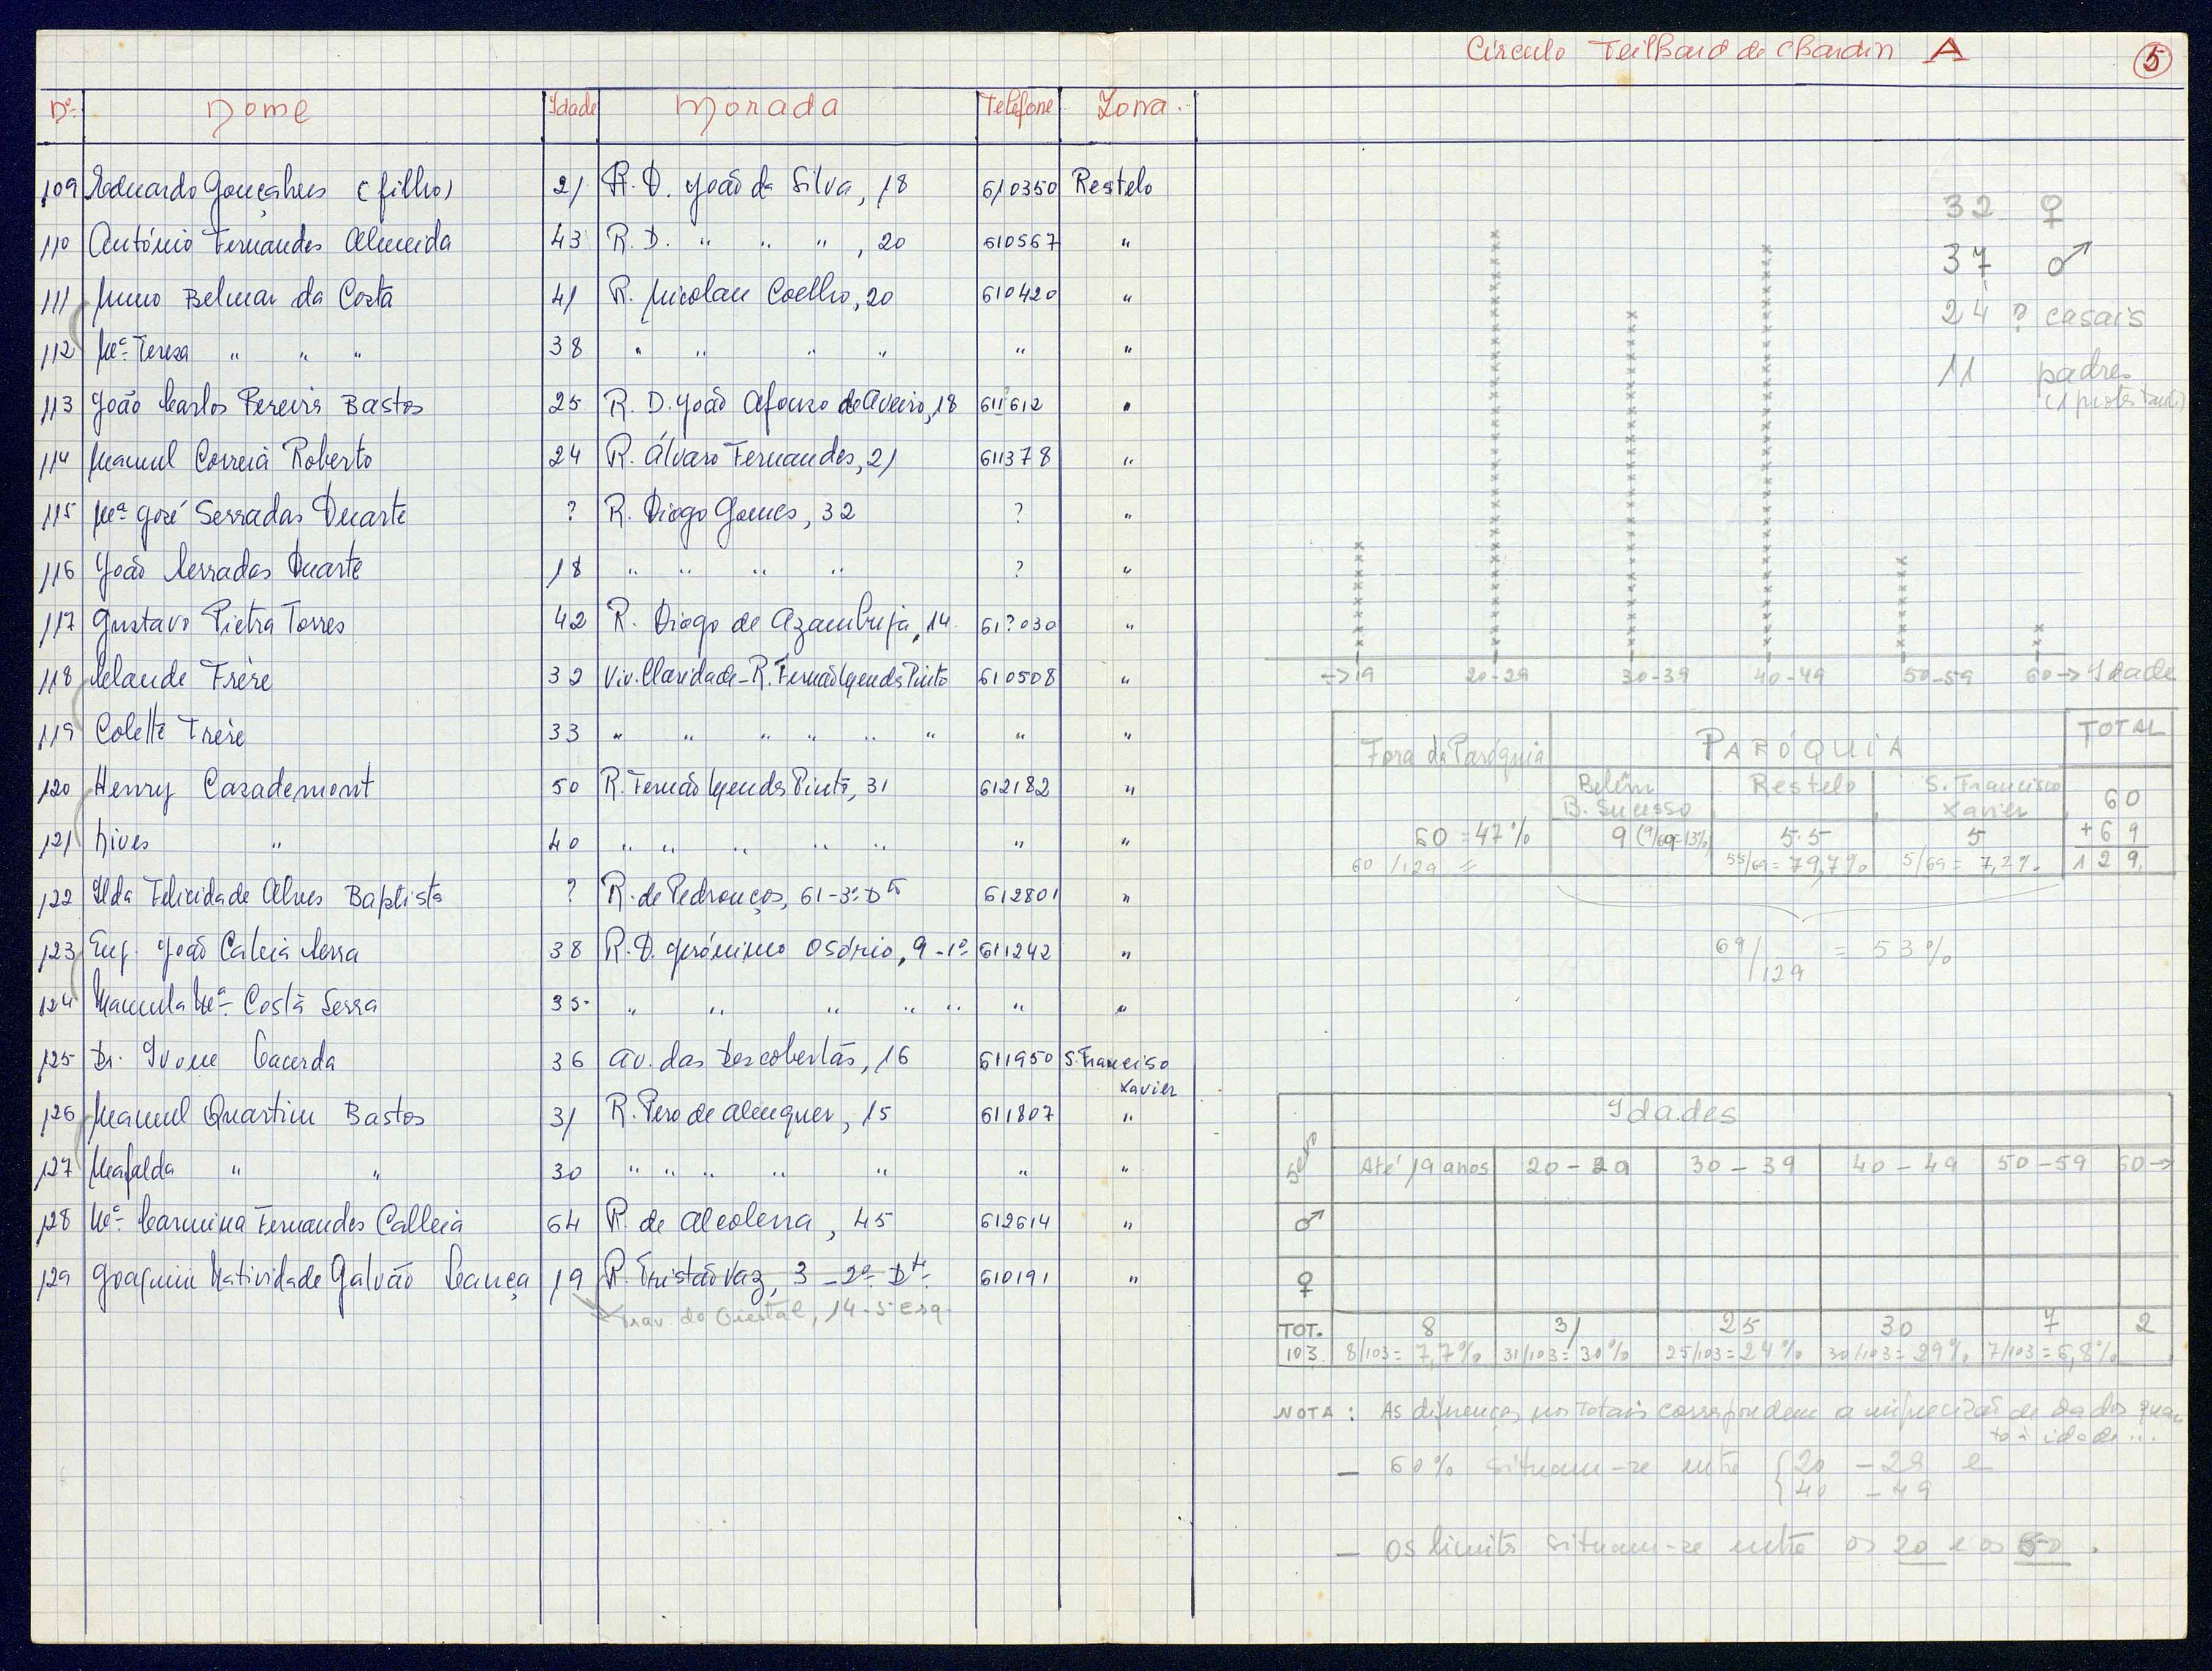 Circulo Teilhard de Chardin A 5
Nº Nome Idade Morada Telefone Zona
109 Eduardo Gonçalves (filho) 21 R. D. João da Silva, 18 610350 Restelo
110 António Fernandes Almeida 43 R. D. " " ", 20 610567 "
111 Nuno Belmar da Costa 41 R. Nicolau Coelho, 20 610420 "
112 Mª Teresa " " " 38 " " " " " "
113 João Carlos Pereira Bastos 25 R. D. João Afonso de Aveiro, 18 611?612 "
114 Manuel Correia Roberto 24 R. Álvaro Fernandes, 21 611378 "
115 Mª José Serradas Duarte ? R. Diogo Gomes, 32 ? "
116 João Serradas Duarte 18 " " " " ? "
117 Gustavo Pietra Torres 42 R. Diogo de Azambuja, 14 61?030 "
118 Claude Frère 32 Viv. Claridade - R. Fernão Mendes Pinto 610508 "
119 Colette Frère 33 " " " " " " " "
120 Henry Casademont 50 R. Fernão Mendes Pinto, 31 612182 "
121 Nives " 40 " " " " " " "
122 Ilda Felicidade Alves Baptista ? R. de Pedrouços, 61-3º Dtº 612801 "
123 Eng. João Caleia Serra 38 R. D. Jerónimo Osório, 9-1º 611242 "
124 Manuela Mª Costa Serra 35 " " " " " " "
125 Dr. Ivone Lacerda 36 Av. das Descobertas, 16 611950 S. Francisco
Xavier
126 Manuel Quartin Bastos 31 R. Pero de Alenquer, 15 611807 "
127 Mafalda " " 30 " " " " " " "
128 Mª Carmina Fernandes Calleia 64 R. de Alcolena, 45 612614 "
129 Joaquim Natividade Galvão Lança 19 R. Tristão Vaz, 3-2º Dtº 610191 "
Trav. do Giestal, 14-5 Esq.
32 ♀
37 ♂
24 ? casais
11 padres
(1 protestante)
→19 20-29 30-39 40-49 50-59 60→ Idade
Fora da Paróquia PARÓQUIA TOTAL
Belém
B. Sucesso Restelo S. Francisco
Xavier 60
60 = 47% 9 (9/69=13%) 55 5 +69
60/129 = 55/69 = 79,7% 5/69 = 7,2% 129
69/129 = 53%
Idades
Sexo Até 19 anos 20-29 30-39 40-49 50-59 60→
♂
♀
TOT. 8 31 25 30 7 2
103 8/103 = 7,7% 31/103 = 30% 25/103 = 24% 30/103 = 29% 7/103 = 6,8%
NOTA: As diferenças nos Totais correspondem a imprecisão de dados quan
to à idade...
- 60% situam-se entre {20 - 29 e
40 - 49
- Os limites situam-se entre os 20 e os 50.